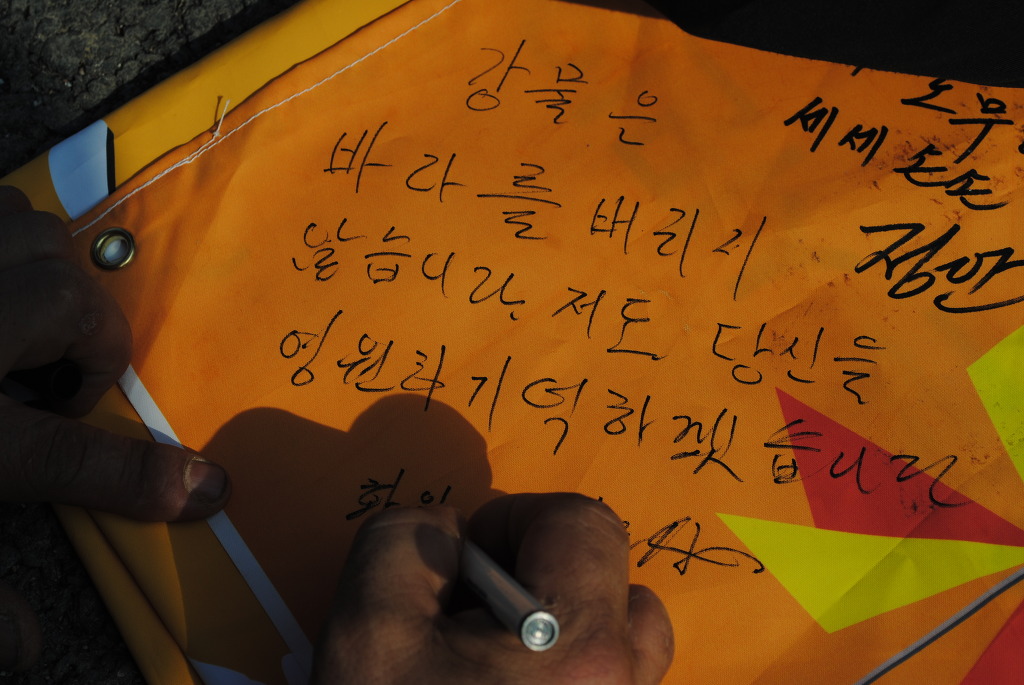 강물은
바라를 버리지
않습니다. 저도 당신을
영원히 기억하겠습니다
세세 도도